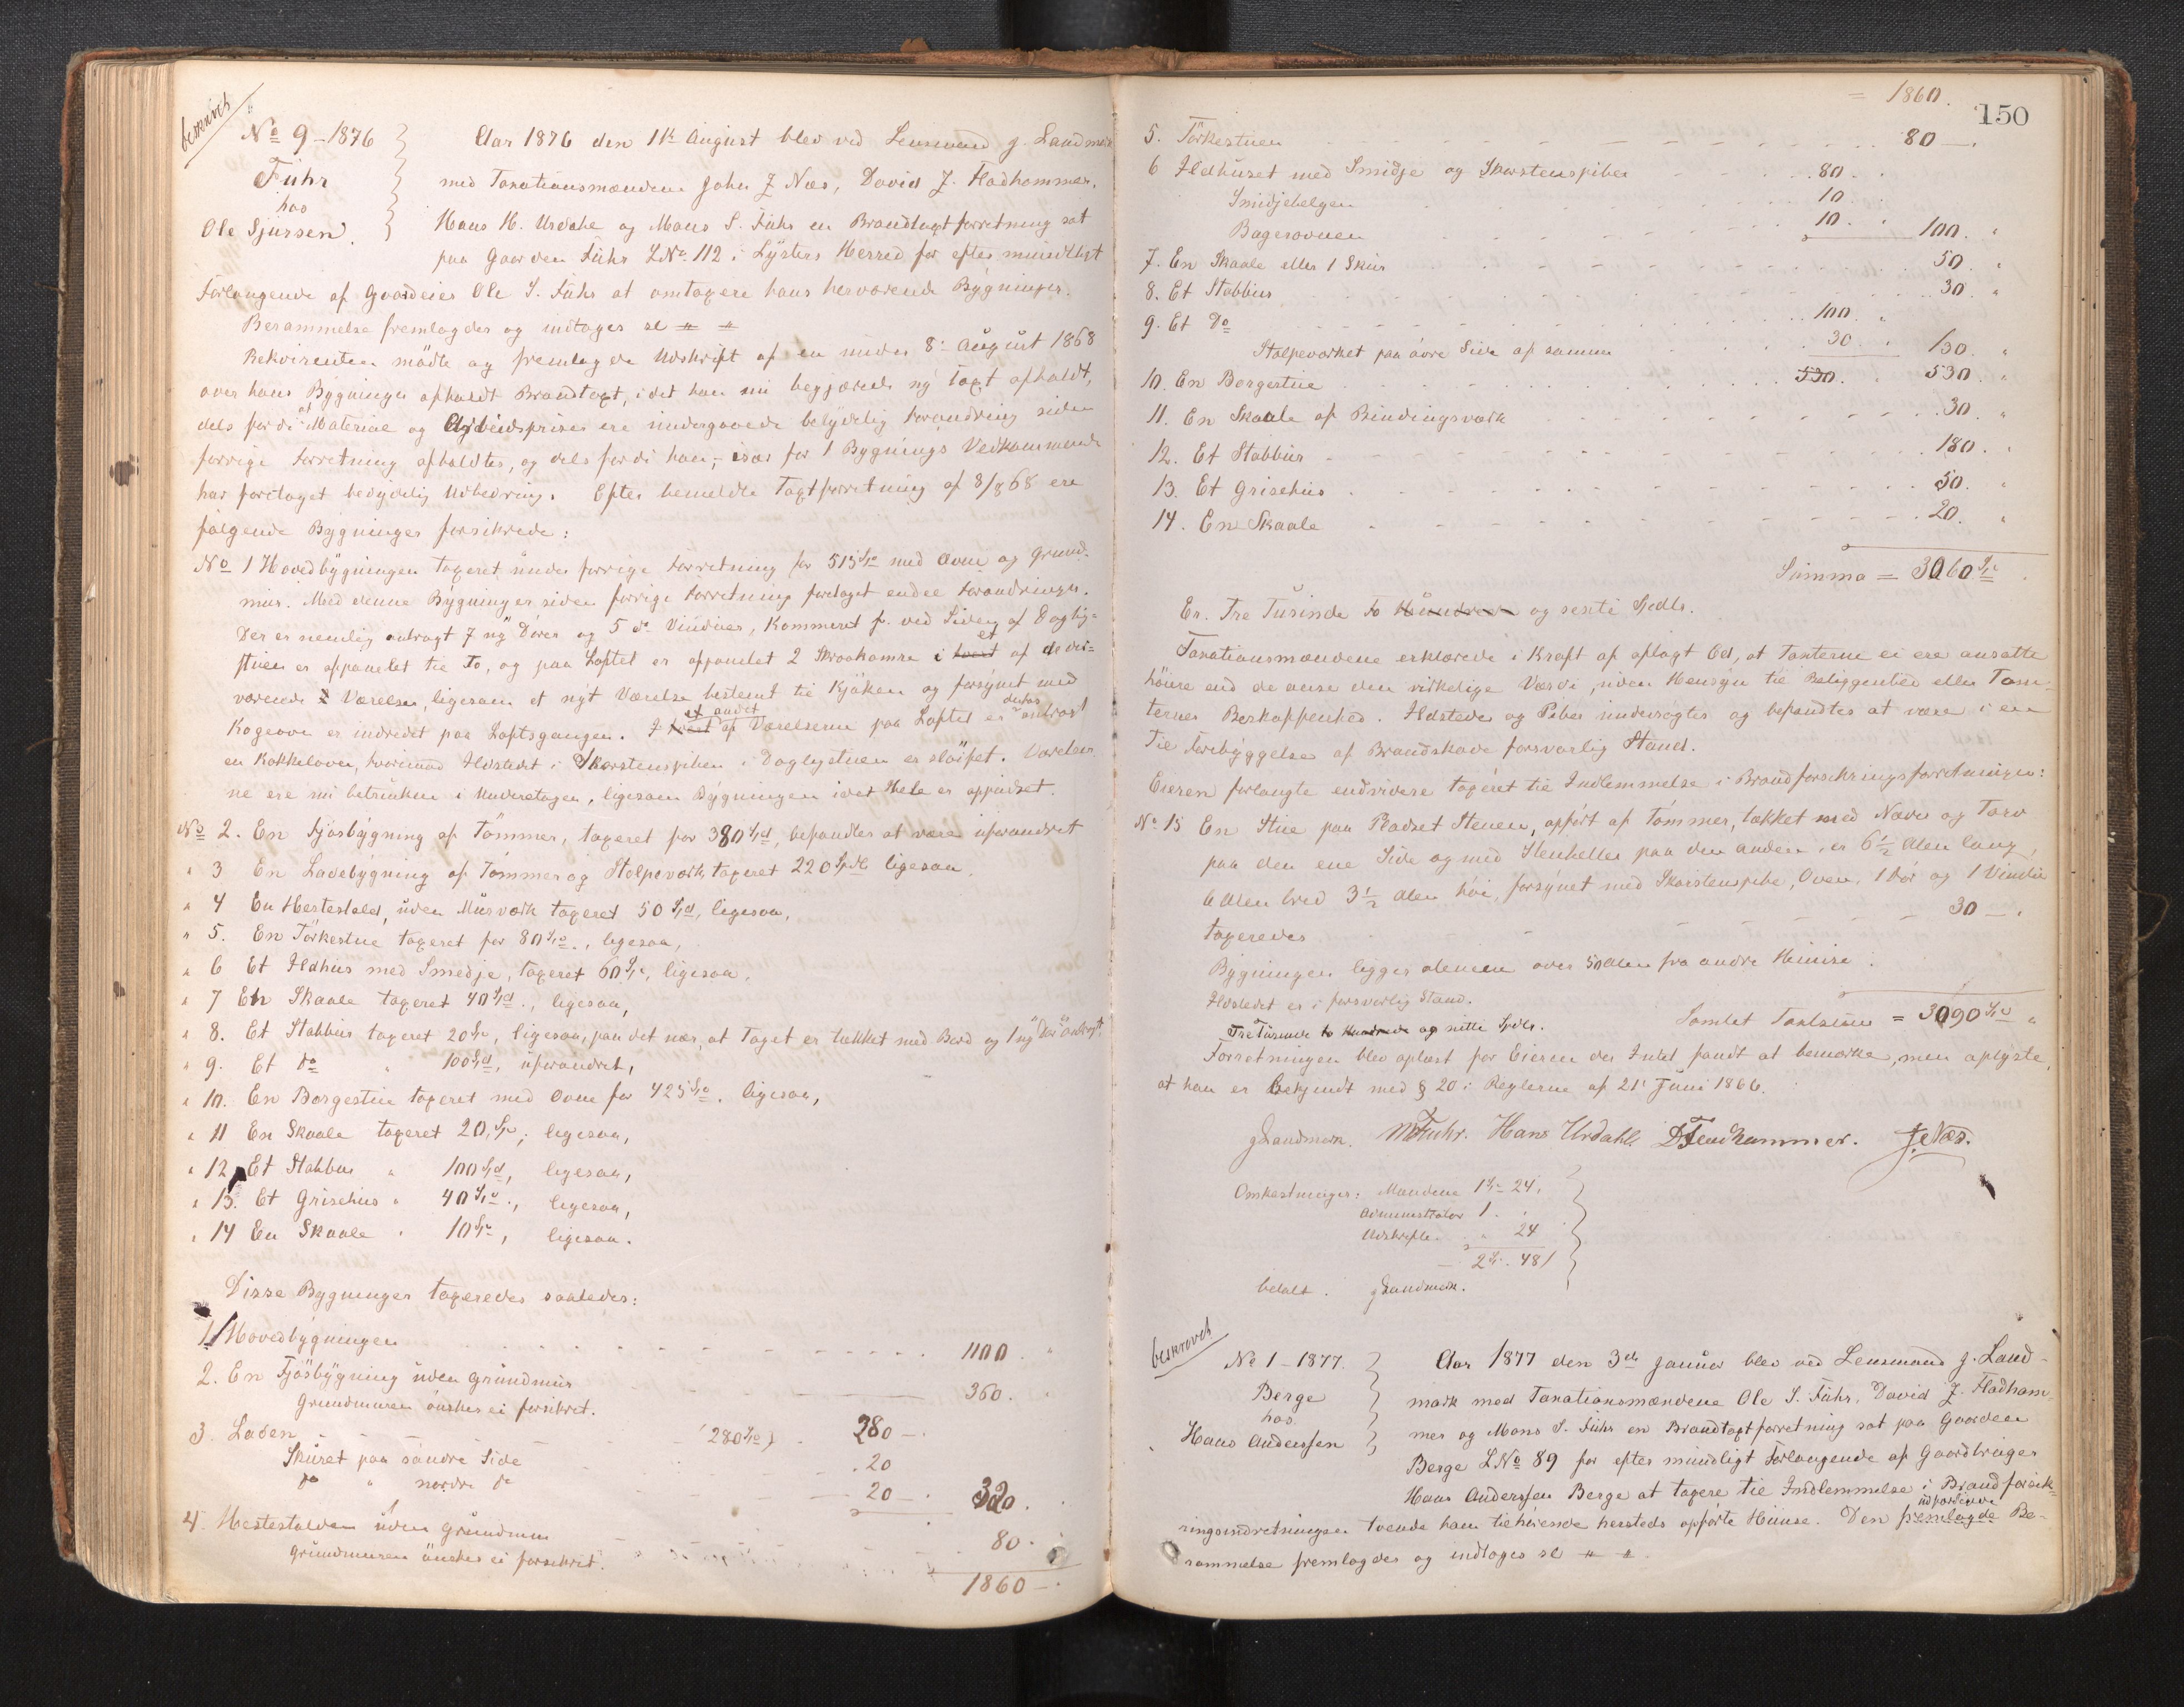 beskrevet
No 9 - 1876
Fuhr
hos
Ole Sjursen.
Aar 1876 den 11te August blev ved Lensmand J. Landmark
med Taxationsmændene John J Næs, David J. Fladhammer,
Hans H. Urdahl og Mons S. Fuhr en Brandtaxtforretning sat
paa Gaarden Fuhr LNo 112 i Lysters Herred for efter mundtligt
Forlangende af Gaardeier Ole S. Fuhr at omtaxere hans herværende Bygninger.
Berammelse fremlagdes og indtages sl " "
Rekvirenten mödte og fremlagde Udskrift af en under 8de August 1868
over hans Bygninger afholdt Brandtaxt, idet han nu begjærede ny Taxt afholdt,
dels fordi af Materiale og Arbeidspriser ere undergaaede betydelig Forandring siden
forrige Forretning afholdtes, og dels fordi han, især for 1 Bygnings Vedkommende
har foretaget betydelig Udbedring. Efter bemeldte Taxtforretning af 8/8 68 ere
fölgende Bygninger forsikrede:
No 1 Hovedbygningen taxeret under forrige Forretning for 515 Spd med Ovne og Grund-
mur. Med denne Bygning er siden forrige Forretning foretaget endel Forandringer.
Der er nemlig anbragt 7 ny Dörer og 5 do Vinduer, Kammeret p. ved Siden af Daglig-
stuen er afpanelet til to, og paa Loftet er afpanelet 2 Skraakamre i hvert et af de der-
værende 2 Værelser, ligesom et nyt Værelse bestemt til Kjöken og forsynet med
Kogeovn er indredet paa Loftsgangen. I hvert et andet af Værelserne paa Loftet er derhos anbragt
en Kakkelovn, hvorimod Ildstedet i Skorstenspiben i Daglystuen er slöifet. Værelser-
ne ere nu betrukne i Underetagen, ligesom Bygningen idet Hele er oppudset.
No 2. En Fjösbygning af Tömmer, taxeret for 380 Spd, befandtes at være uforandret
" 3 En Ladebygning af Tömmer og Stolpeværk, taxeret 220 Spd ligesaa.
" 4 En Hestestald, uden Murværk taxeret 50 Spd, ligesaa,
" 5. En Törkestue taxeret for 80 Spd., ligesaa,
" 6 Et Ildhus med Smedje, taxeret 60 Spd, ligesaa,
" 7 En Skaale taxeret 40 Spd., ligesaa,
" 8. Et Stabbur taxeret 20 Spd, ligesaa, paa det nær, at Taget er tækket med Bord og 1 ny Dör anbragt.
" 9. Et do " 100 Spd, uforandret,
" 10. En Borgestue taxeret med Ovn for 425 Spd. ligesaa,
" 11 En Skaale taxeret 20 Spd, ligesaa,
" 12. Et Stabbur " 100 Spd, ligesaa,
" 13. Et Grisehus " 40 Spd., ligesaa,
" 14 En Skaale " 10 Spd, ligesaa.
Disse Bygninger taxeredes saaledes:
1/ Hovedbygningen 1100. "
2. En Fjösbygning uden Grundmur 360. "
Grundmuren önskes ei forsikret.
3. Laden (280 Spd) 280 -
Skuret paa söndre Side 20
do " nordre do 20 - 320.
4. Hestestalden uden Grundmur 80.
Grundmuren önskes ei forsikret.
1860 -
= 1860.
150
5. Törkestuen 80 -
6 Ildhuset med Smidje og Skorstenspiber 80. "
Smidjebelgen 10. "
Bagerovnen 10. " 100. "
7. En Skaale eller 1 Skur 50. "
8. Et Stabbur 30. "
9. Et Do 100. "
Stolpeværket paa övre Side af samme 30. " 130. "
10. En Borgestue 530. " 530. "
11. En Skaale af Bindingsværk 30. "
12. Et Stabbur 180. "
13. Et Grisehus 50. "
14. En Skaale 20. "
Summa = 3060 Spd.
Er. Tre Tusinde to Hundrede og sexti Spdlr.
Taxationsmændene erklærede i Kraft af aflagt Ed, at Taxterne ei ere ansatte
höiere end de anse den virkelige Værdi, uden Hensyn til Beliggenhed eller Tom-
ternes Beskaffenhed. Ildsteder og Piber undersögtes og befandtes at være i en
til Forebyggelse af Brandskade forsvarlig Stand.
Eieren forlangte endvidere taxeret til Indlemmelse i Brandforsikringsforretningen:
No 15 En Stue paa Pladset Stenen, opfört af Tömmer, tækket med Næver og Torv
paa den ene Side og med Stenheller paa den anden, er 6 1/2 Alen lang,
6 Alen bred 3 1/2 Alen höi, forsynet med Skorstenspibe, Oven, 1 Dör og 1 Vindue
taxeredes 30 -
Bygningen ligger alene over 50 Alen fra andre Huuse.
Ildstedet er i forsvarlig Stand.
Samlet Taxtsum = 3090 Spd "
Tre Tusinde to Hundrede og nitti Spdlr.
Forretningen blev oplæst for Eieren der Intet fandt at bemærke, men oplyste,
at han er bekjendt med § 20 i Reglerne af 21de Juni 1866.
J Landmark. MSFuhr. Hans Urdahl. DFladhammer. J. Næs.
Omkostninger: Mændene 1 Sp 24.
Administrator 1. "
Udskrifter " 24
2 Sp. 48 /
betalt. J Landmark.
beskrevet
No 1 - 1877.
Berge
hos.
Hans Anderssen
Aar 1877 den 3de Januar blev ved Lensmand J. Land-
mark med Taxationsmændene Ole S. Fuhr, David J. Fladham-
mer og Mons S. Fuhr en Brandtaxtforretning sat paa Gaarden
Berge LNo 89 for efter mundligt Forlangende af Gaardbruger
Hans Anderssen Berge at taxere til Indlemmelse i Brandforsik-
ringsindretningen tvende ham tilhörende hersteds opförte Huuse. Den fremlagde udfærdigede Be-
rammelse fremlagdes og indtages sl " "